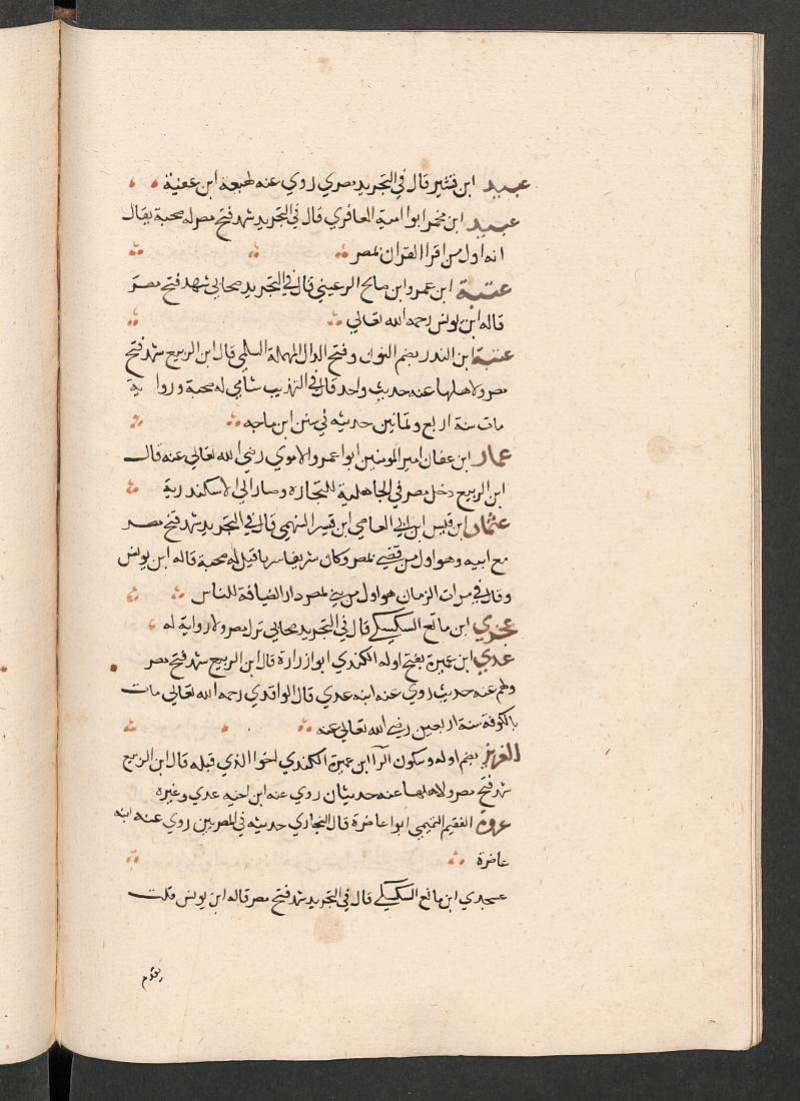 عبيد ابن قشير قال في التجريد مصري روي عنه لهيعة ابن عقبة
عبيد ابن مخمر ابوا امية المعافري قال في التجريد شهد فتح مصر له صحبة يقال
انه اول من اقرا القران بمصر
عتبة ابن عمرو ابن صالح الرعيني قال في التجريد صحابي شهد فتح مصر
قاله ابن يونس رحمه الله تعالي
عتبة ابن الندر بضم النون وفتح الدال المهملة السلمي قال ابن الربيع شهد فتح
مصر ولاهلها عنه حديث واحد قال في التهذيب شامي له صحبة وروا ية
مات سنة اربع وثمانين حديثه في سنن ابن ماجه
عمار ابن عفان امير المومنين ابوا عمرو الاموي رضي الله تعالي عنه قال
ابن الربيع دخل مصر في الجاهلية للتجارة وصار الي الاسكندرية
عثمان ابن قيس ابن ابي العاصي ابن قيس السهمي قال في التجريد شهد فتح مصر
مع ابيه وهو اول من قضي بمصر وكان شريفا سريا قيل له صحبة قاله ابن يونس
وقال في مرات الزمان هو اول من بني بمصر دار الضيافة للناس
عجري ابن مانع السكسكي قال في التجريد صحابي نزل مصر ولا رواية له
عدي ابن عميرة بفتح اوله الكندي ابوا زرارة قال ابن الربيع شهد فتح مصر
ولهم عنه حديث روي عنه ابنه عدي قال الواقدي رحمه الله تعالي مات
بالكوفة سنة اربعين رضي الله تعالي عنه
العرير بضم اوله وسكون الرآ ابن عميرة الكندي اخوا الذي قبله قال ابن الربيع
شهد فتح مصر ولاهلها عنه حديثان روي عنه ابن اخيه عدي وغيره
عروة الفقيم التميمي ابوا غاضرة قال البخاري حديثه في المصريين روي عنه ابنه
غاضرة
عسجدي ابن مانع السكسكي قال في التجريد شهد فتح مصر قاله ابن يونس قلت